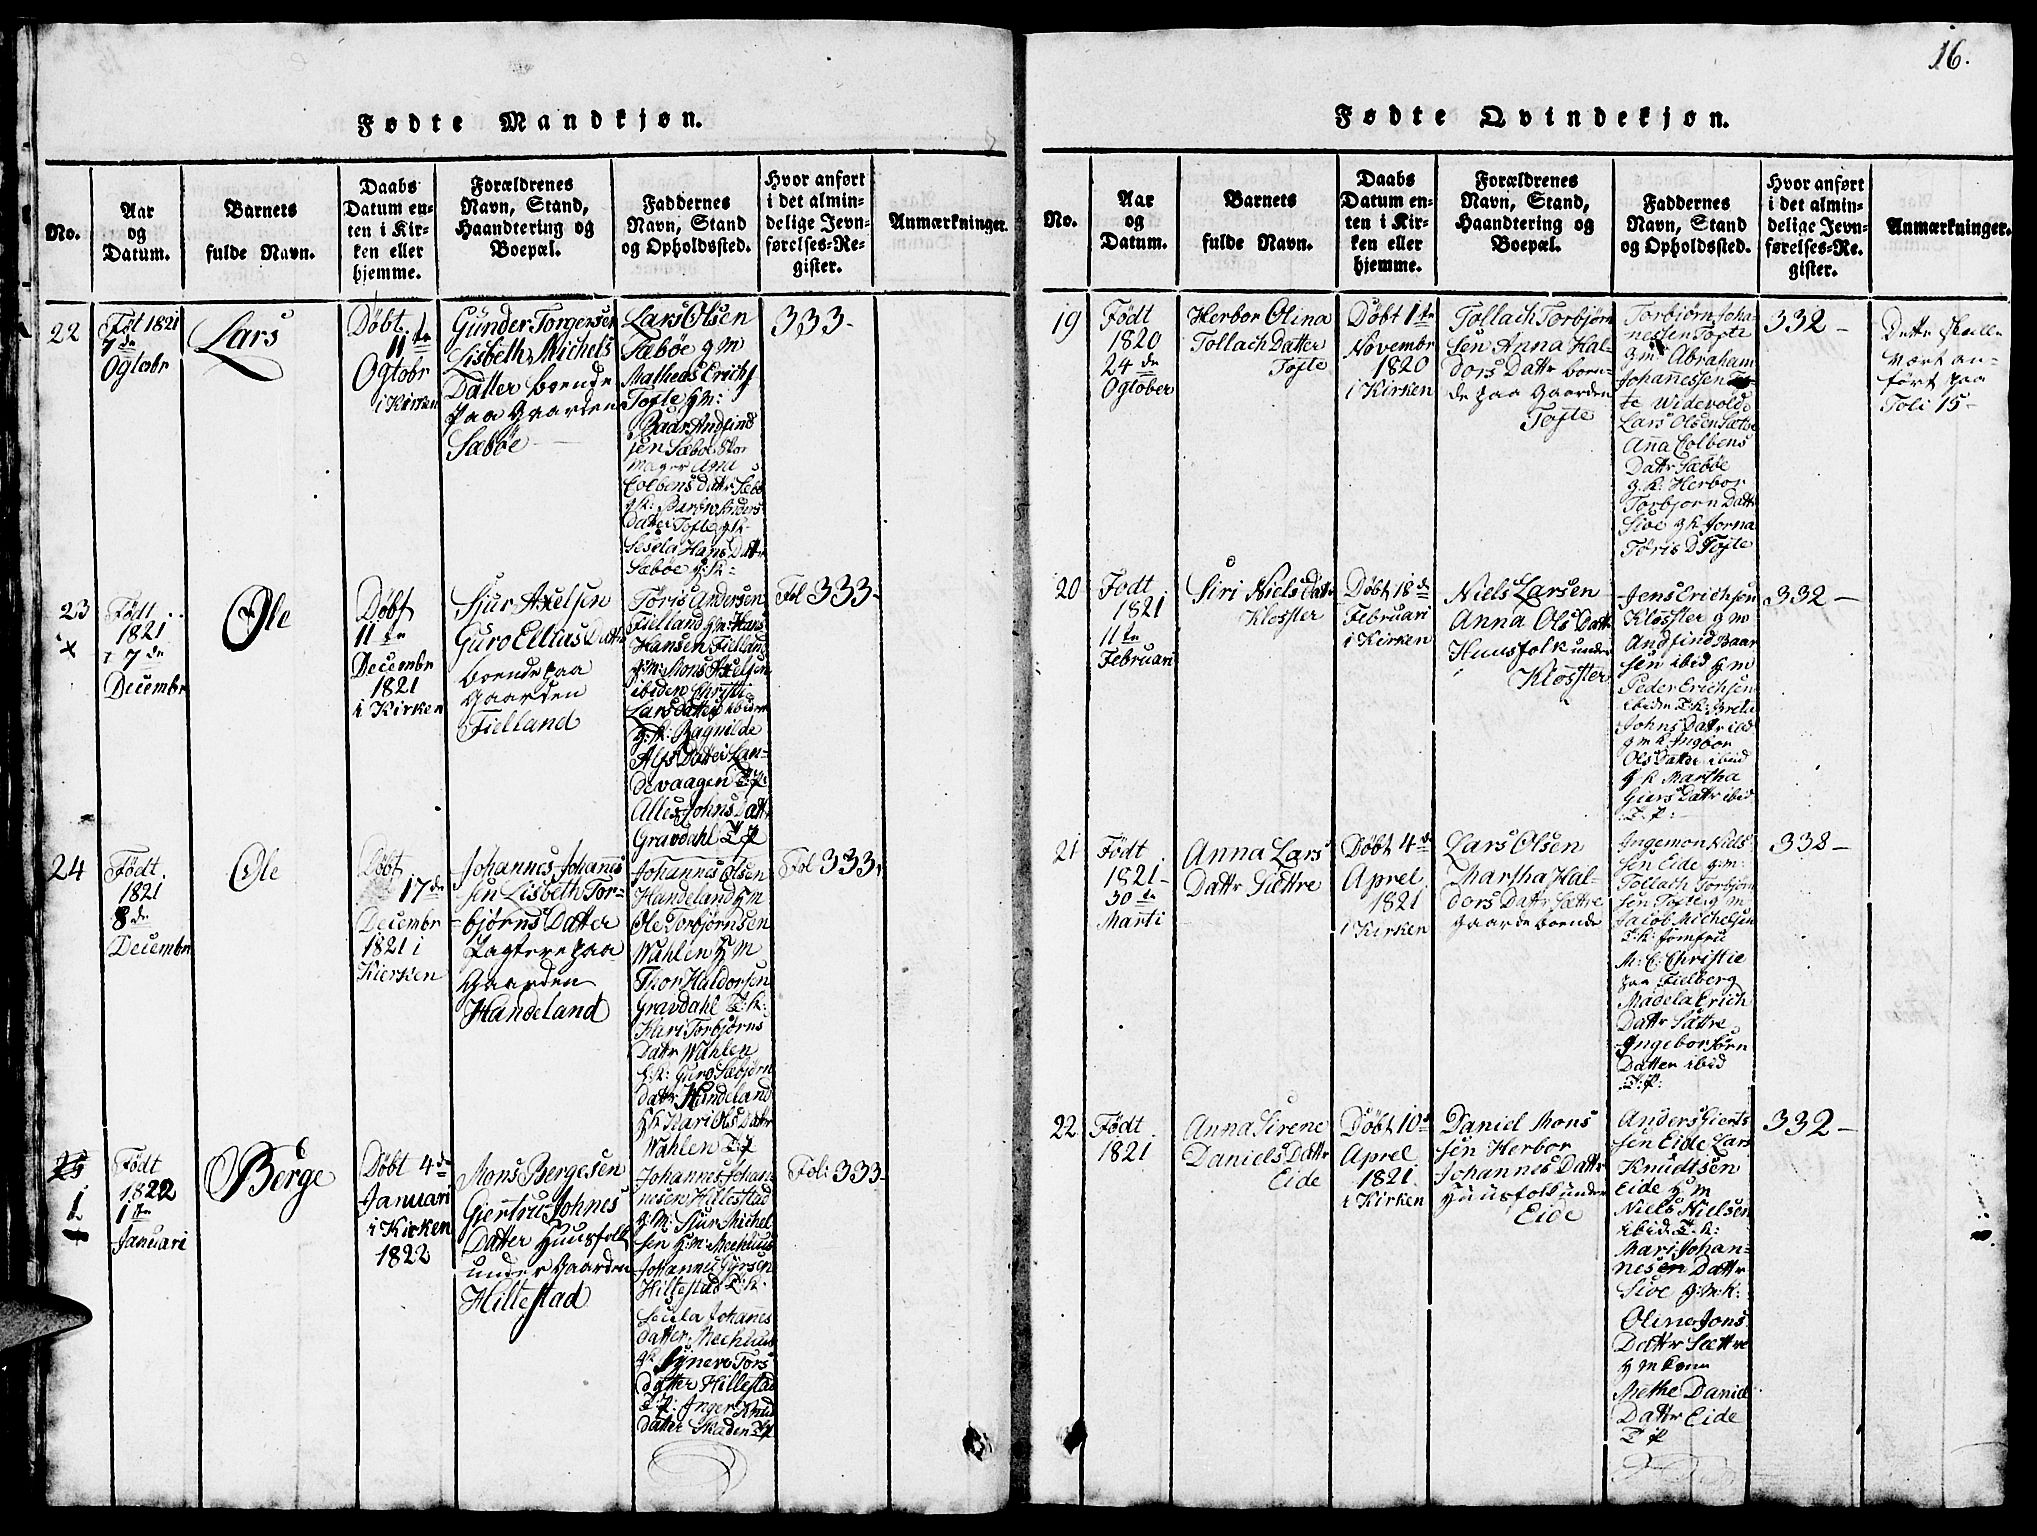 16.
Fødte Mandkjøn.
No.
Aar
og
Datum.
Barnets
fulde Navn.
Daabs
Datum en-
ten i Kir-
ken eller
hjemme.
Forældrenes
Navn, Stand,
Haandtering og
Boepæl.
Faddernes
Navn, Stand
og Opholdssted.
Hvor anført
i det almin-
delige Jevn-
førelses-Re-
gister.
Anmærkninger.
22
Føt 1821
7de
Ogtobr
Lars
Døbt
11te
Ogtobr
i Kirken
Günder Torgersen
Lisbeth Michels
Datter boende
paa Gaarden
Sæbøe
Lars Olsen
Sæbøe gm
Matheas Erichs
Tofte gm:
Baar Andfind
sen Sæbøe Skor
mager Ana
Colbens dattr Sæbø
gk:
Datter Tofte gk
Sesela Hans Dattr
Sæbøe g:k:
333-
23
x
Født
1821
7de
Decembr
Ole
Døbt
11te
Decembr
1821
i Kirken
Sjur Axelsen
Guro Ellias Dattr
boende paa
Gaarden
Fielland
Toris Andersen
Fielland gm: Hans
Hansen Fielland
g:m: Mons Axelsen
ibiden Christi
Lars datter ibidem
g:k: Ragnilde
Alfs Datter Lan-
devaagen T:p
Alles Johns Dattr
Gravdahl T p
Fol 333-
24
Født
1821
8de
Decembr
Ole
Døbt
17de
Decembr
1821 i
Kierken
Johannes Johannis
sen Lisbeth Tor-
=bjørns Datter
Pagtere paa
Gaarden
Handeland
Johannes Olsen
Handeland gm
Ole Torbjørnsen
Wahlen gm
Thor Haldorsen
Gravdahl T:k:
Kari Torbjørns
Dattr Wahlen
g:k: Guro Sæbjørn
dattr Handeland
gk Kari Ols Dattr
Wahlen T p
Fol 333.
25
1
Født
1822
1te
Januari
Berge
Døbt 4de
Januari
i Kirken
1822
Mons Bergesen
Giertru Johnes
Datter Huusfolk
under Gaarden
Hillestad
Johannes Johan-
nesen Hillestad
g:m: Sjur Michel
sen g:m: Meehuus
Johannes Sjursen
Hillestad T:k:
Secela Johannes
datter Meehuus
gk Syneve Tors
datter Hillestad
T:p: Inger Knud
datter Skaden T p
Fol: 333-
Fødte Qvindekjøn.
No.
Aar
og
Datum.
Barnets
fulde Navn.
Daabs
Datum en-
ten i Kir-
ken eller
hjemme.
Forældrenes
Navn, Stand,
Haandtering og
Boepæl.
Faddernes
Navn, Stand
og Opholdssted.
Hvor anført
i det almin-
delige Jevn-
førelses-Re-
gister.
Anmærkninger.
19
Født
1820
24de
Ogtober
Herbor Olina
Tollach Datter
Tofte
Døbt 1te
Novembr
1820
i Kirken
Tollach Torbjørn
sen Anna Hal-
dors Dattr boen-
de paa Gaarden
Tofte
Torbiørn Joha-
nesen Tofte
gm Abraham
Johannessen
te Widevold
Lars Olsen Sættre
Anna Colbens
Dattr Sæbøe
g.k: Herbor
Torbjorn Dattr
Sive gk Jorna
Toris D Tofte
332-
Dette skulle
vært an-
ført paa
Foli 15-
20
Fodt
1821
11te
Februari
Siri Niels Dattr
Kloster
Døbt 18de
Februari
i Kirken
Niels Larsen
Anna Ols Dattr
Huusfolk under
Kloster
Jens Erichsen
Kloster gm
Andfind Baar
sen ibid gm
Peder Erichsen
ibidm T:k: Brete
Johns Dattr ibid
g m k Ingbor
Ols Datter ibid
gk Martha
Giers Dattr ibid
T:p:
332-
21
Født
1821-
30te
Marti
Anna Lars
Dattr Sættre
Døbt 4de
Aprel
1821
i Kirken
Lars Olsen
Martha Hal-
dors Dattr Sættre
Gaarde boende
Ingemon Niels
sen Eide g:m:
Tollach Torbjørn
sen Tofte g m
Jacob Michelsen
T:k: Jomfru
M: C: Christie
paa Fielberg
Madela Erich
Dattr Sættre
Ingebor Jorn
Datter ibid
T:p:
332-
22
Født
1821
Anna Sirene
Daniels Dattr
Eide
Døbt 10de
Aprel
1821
i Kirken
Daniel Mons
sen Herbor
Johannes Dattr
Huusfolk under
Eide
Anders Gierts
sen Eide Lars
Knudtsen
Eide g m
Niels Nielsen
ibid: T:k:
Mari Johan=
nesen Dattr
Sive g:m:k:
Oline Jons
Dattr Sættre
g m kone
Methe Daniel
Dattr Eide
T p
332-